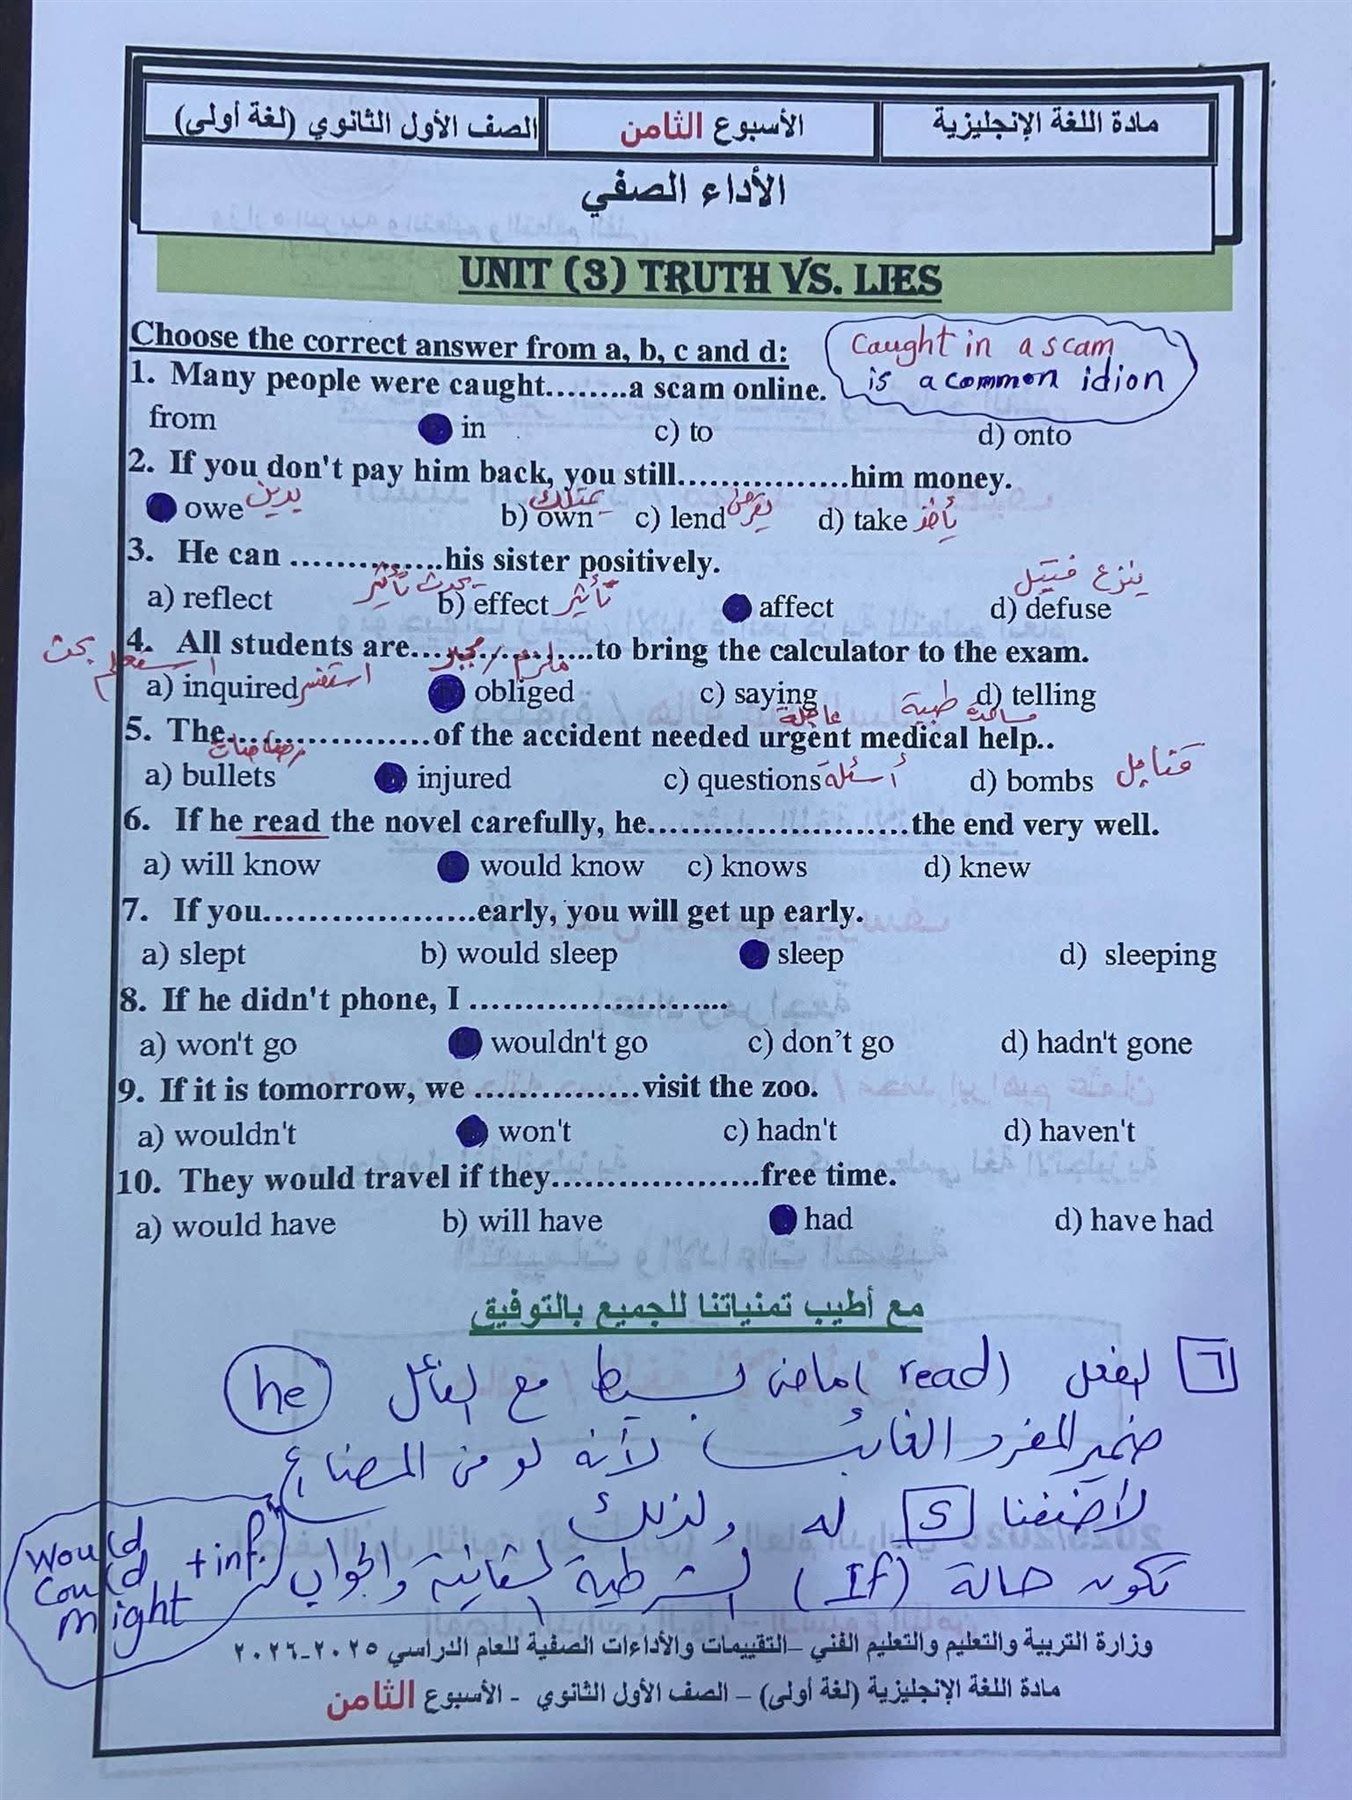 مادة اللغة الإنجليزية الأسبوع الثامن الصف الأول الثانوي (لغة أولى)
الأداء الصفي
UNIT (3) TRUTH VS. LIES
Choose the correct answer from a, b, c and d:
Caught in a scam
is a common idion
1. Many people were caught........a scam online.
from in c) to d) onto
2. If you don't pay him back, you still...............him money.
owe يدين b) own يمتلك c) lend يقرض d) take يأخذ
3. He can ..............his sister positively.
ينزع فتيل
a) reflect يحدث تأثير b) effect تأثير affect d) defuse
4. All students are..................to bring the calculator to the exam.
ملزم / مجبر
a) inquired استفسر obliged c) saying d) telling
5. The....................of the accident needed urgent medical help..
عاجلة مساعدة طبية
a) bullets رصاصات injured c) questions أسئلة d) bombs قنابل
6. If he read the novel carefully, he.......................the end very well.
a) will know would know c) knows d) knew
7. If you...................early, you will get up early.
a) slept b) would sleep sleep d) sleeping
8. If he didn't phone, I .......................
a) won't go wouldn't go c) don’t go d) hadn't gone
9. If it is tomorrow, we ...............visit the zoo.
a) wouldn't won't c) hadn't d) haven't
10. They would travel if they...................free time.
a) would have b) will have had d) have had
مع أطيب تمنياتنا للجميع بالتوفيق
٦ الفعل (read) ماضى بسيط مع الفاعل he
ضمير المفرد الغائب لأنه لو فى المضارع
لأضفنا s له ولذلك
تكون حالة (If) الشرطية الثانية والجواب
would
could + inf.
might
وزارة التربية والتعليم والتعليم الفني –التقييمات والأداءات الصفية للعام الدراسي ٢٠٢٥-٢٠٢٦
مادة اللغة الإنجليزية (لغة أولى) – الصف الأول الثانوي - الأسبوع الثامن